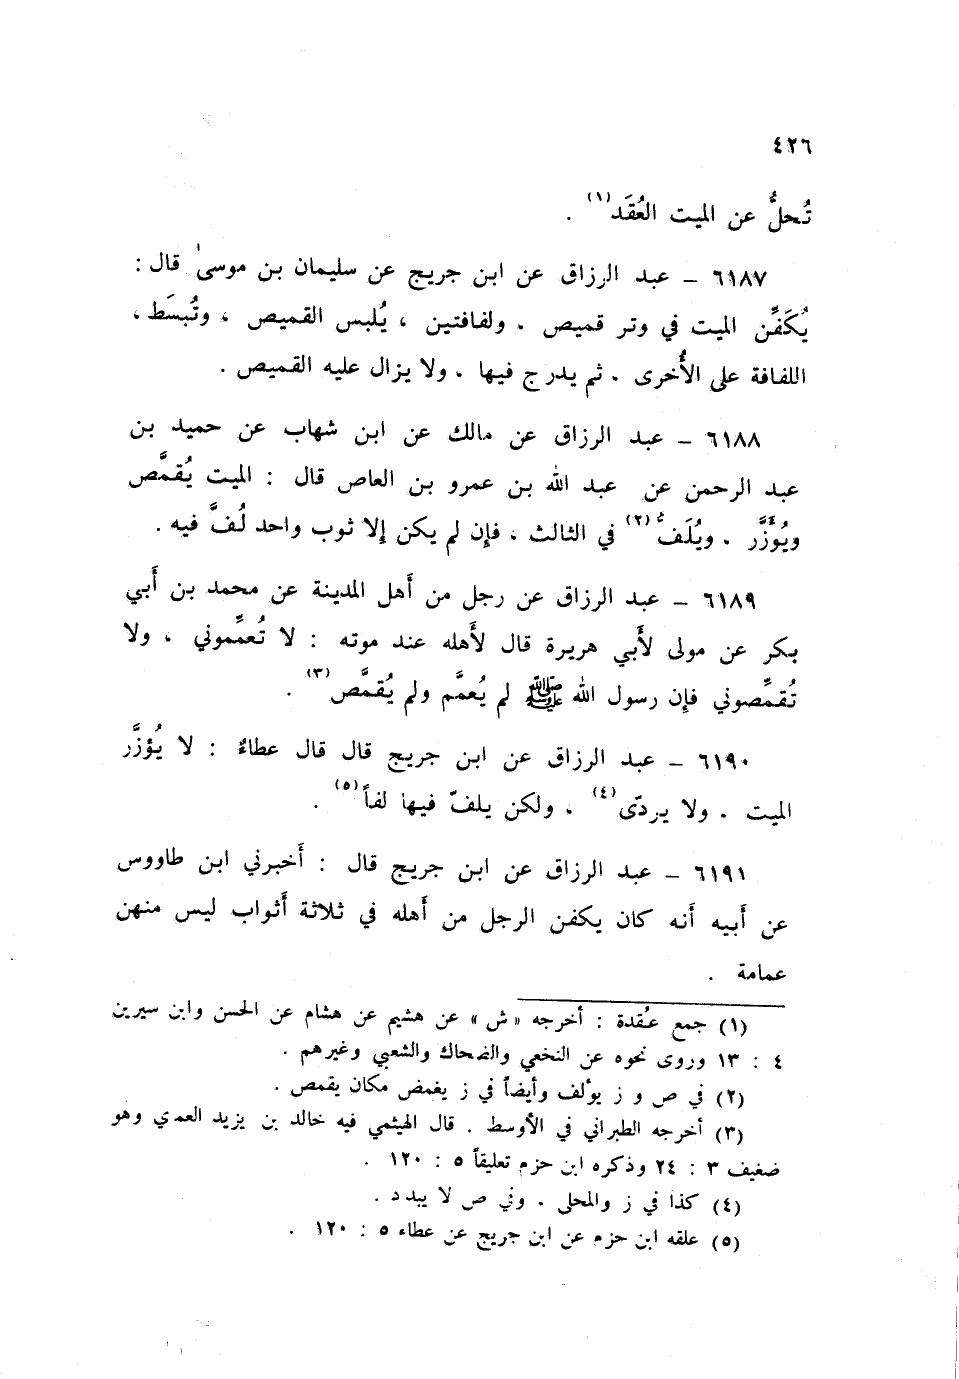 ٤٢٦
تُحلُّ عن الميت العُقَد(١) .
٦١٨٧ – عبد الرزاق عن ابن جريج عن سليمان بن موسىٰ قال :
يُكَفَّن الميت في وتر قميص . ولفافتين ، يُلبس القميص ، وتُبسَط ،
اللفافة على الأُخرى . ثم يدرج فيها . ولا يزال عليه القميص .
٦١٨٨ – عبد الرزاق عن مالك عن ابن شهاب عن حميد بن
عبد الرحمن عن عبد الله بن عمرو بن العاص قال : الميت يُقمَّص
ويُؤَزَّر . ويُلَفُّ(٢) في الثالث ، فإن لم يكن إلا ثوب واحد لُفَّ فيه .
٦١٨٩ – عبد الرزاق عن رجل من أهل المدينة عن محمد بن أَبي
بكر عن مولى لأَبي هريرة قال لأَهله عند موته : لا تُعمِّموني ، ولا
تُقمِّصوني فإن رسول الله ﷺ لم يُعمَّم ولم يُقمَّص(٣) .
٦١٩٠ – عبد الرزاق عن ابن جريج قال قال عطاءٌ : لا يُؤزَّر
الميت . ولا يردّى(٤) ، ولكن يلفّ فيها لفاً(٥) .
٦١٩١ – عبد الرزاق عن ابن جريج قال : أَخبرني ابن طاووس
عن أَبيه أَنه كان يكفن الرجل من أَهله في ثلاثة أَثواب ليس منهن
عمامة .
(١) جمع عُقدة : أخرجه «ش» عن هشيم عن هشام عن الحسن وابن سيرين
٤ : ١٣ وروى نحوه عن النخعي والضحاك والشعبي وغيرهم .
(٢) في ص و ز يؤلف وأيضاً في ز يغمض مكان يقمص .
(٣) أخرجه الطبراني في الأوسط . قال الهيثمي فيه خالد بن يزيد العمدي وهو
ضغيف ٣ : ٢٤ وذكره ابن حزم تعليقاً ٥ : ١٢٠ .
(٤) كذا في ز والمحلى . وفي ص لا يبدد .
(٥) علقه ابن حزم عن ابن جريج عن عطاء ٥ : ١٢٠ .